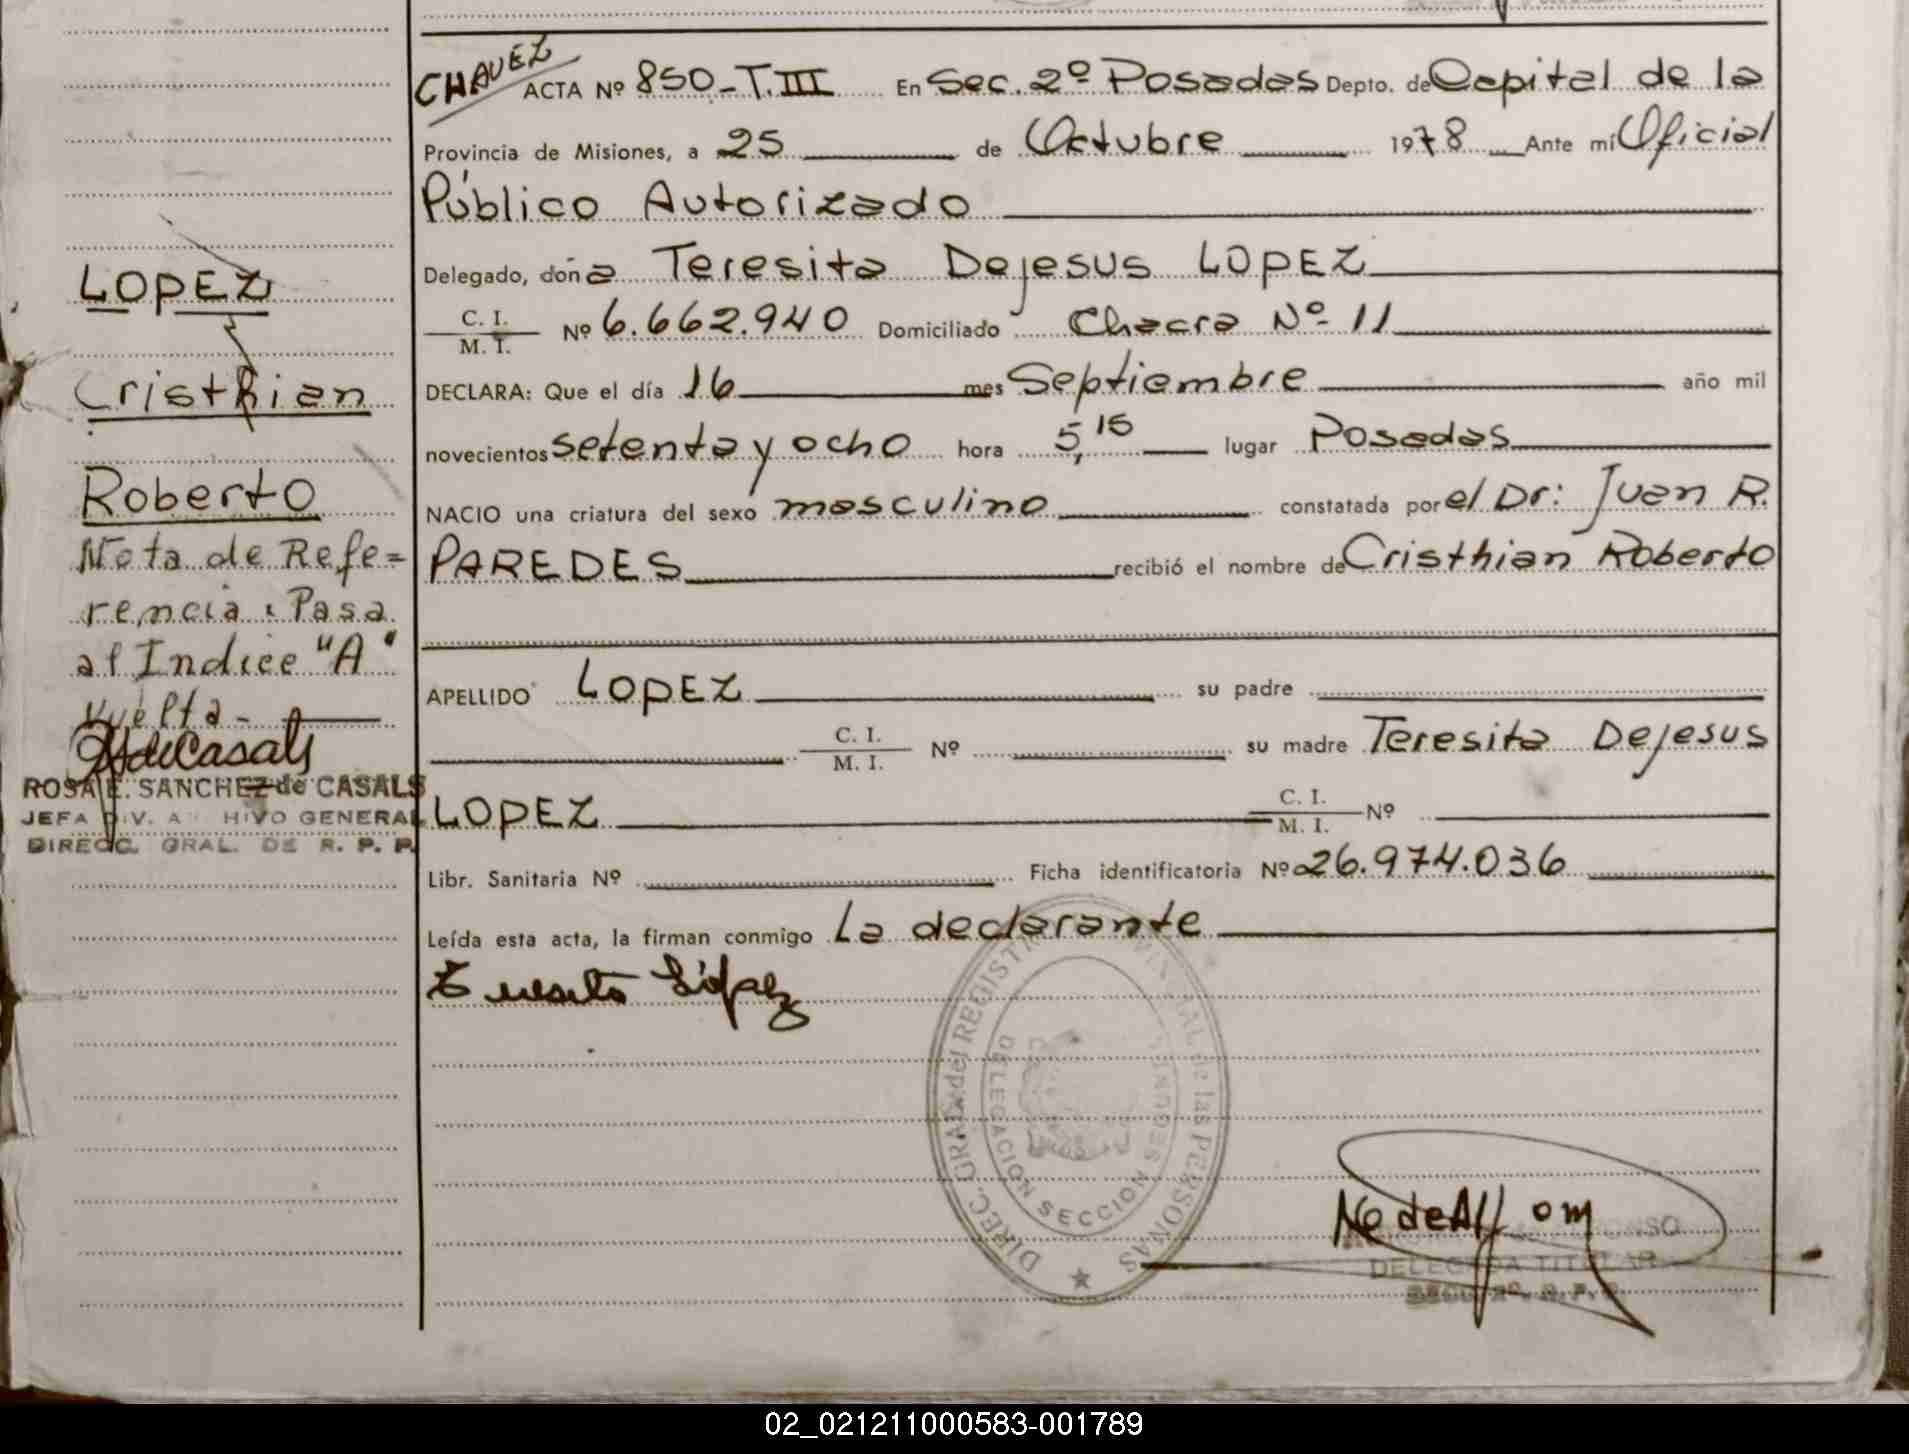 CHAVEZ
ACTA Nº 850-T.III En Sec. 2º Posadas Depto. de Capital de la
Provincia de Misiones, a 25 de Octubre 1978 Ante mí Oficial
Público Autorizado
Delegado, doña Teresita Dejesus LOPEZ
C. I.
M. I.
Nº 6.662.940 Domiciliado Chacra Nº 11
DECLARA: Que el día 16 mes Septiembre año mil
novecientos setenta y ocho hora 5,15 lugar Posadas
NACIO una criatura del sexo masculino constatada por el Dr: Juan R.
PAREDES recibió el nombre de Cristhian Roberto
APELLIDO LOPEZ su padre
C. I.
M. I.
Nº su madre Teresita Dejesus
LOPEZ
C. I.
M. I.
Nº
Libr. Sanitaria Nº Ficha identificatoria Nº 26.974.036
Leída esta acta, la firman conmigo La declarante
Teresita López
LOPEZ
Cristhian
Roberto
Nota de Refe=
rencia: Pasa
al Indice "A"
Vuelta-
ROSA E. SANCHEZ de CASALS
JEFA DIV. ARCHIVO GENERAL
DIRECC. GRAL. DE R. P. P.
DIREC. GRAL. del REGISTRO PROVINCIAL de las PERSONAS
DELEGACION SECCION SEGUNDA
DELEGADA TITULAR
02_021211000583-001789